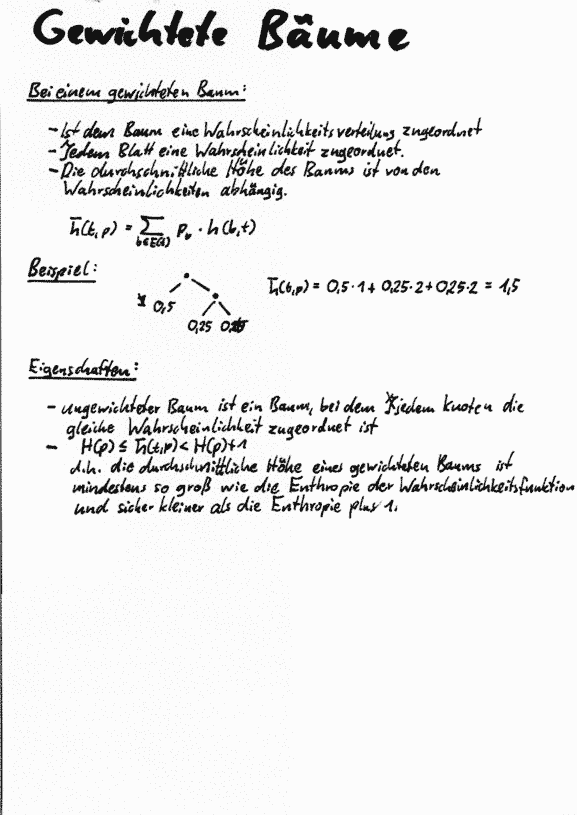 Gewichtete Bäume
Bei einem gewichteten Baum:
- Ist dem Baum eine Wahrscheinlichkeitsverteilung zugeordnet
- Jedem Blatt eine Wahrscheinlichkeit zugeordnet.
- Die durchschnittliche Höhe des Baums ist von den
Wahrscheinlichkeiten abhängig.
h̄(t,p) = ∑ p_b · h(b,t)
b∈E(t)
Beispiel:
h̄(t,p) = 0,5·1 + 0,25·2 + 0,25·2 = 1,5
0,5
0,25 0,25
Eigenschaften:
- ungewichteter Baum ist ein Baum, bei dem jedem Knoten die
gleiche Wahrscheinlichkeit zugeordnet ist
- H(p) ≤ h̄(t,p) < H(p)+1
d.h. die durchschnittliche Höhe eines gewichteten Baums ist
mindestens so groß wie die Enthropie der Wahrscheinlichkeitsfunktion
und sicher kleiner als die Enthropie plus 1.